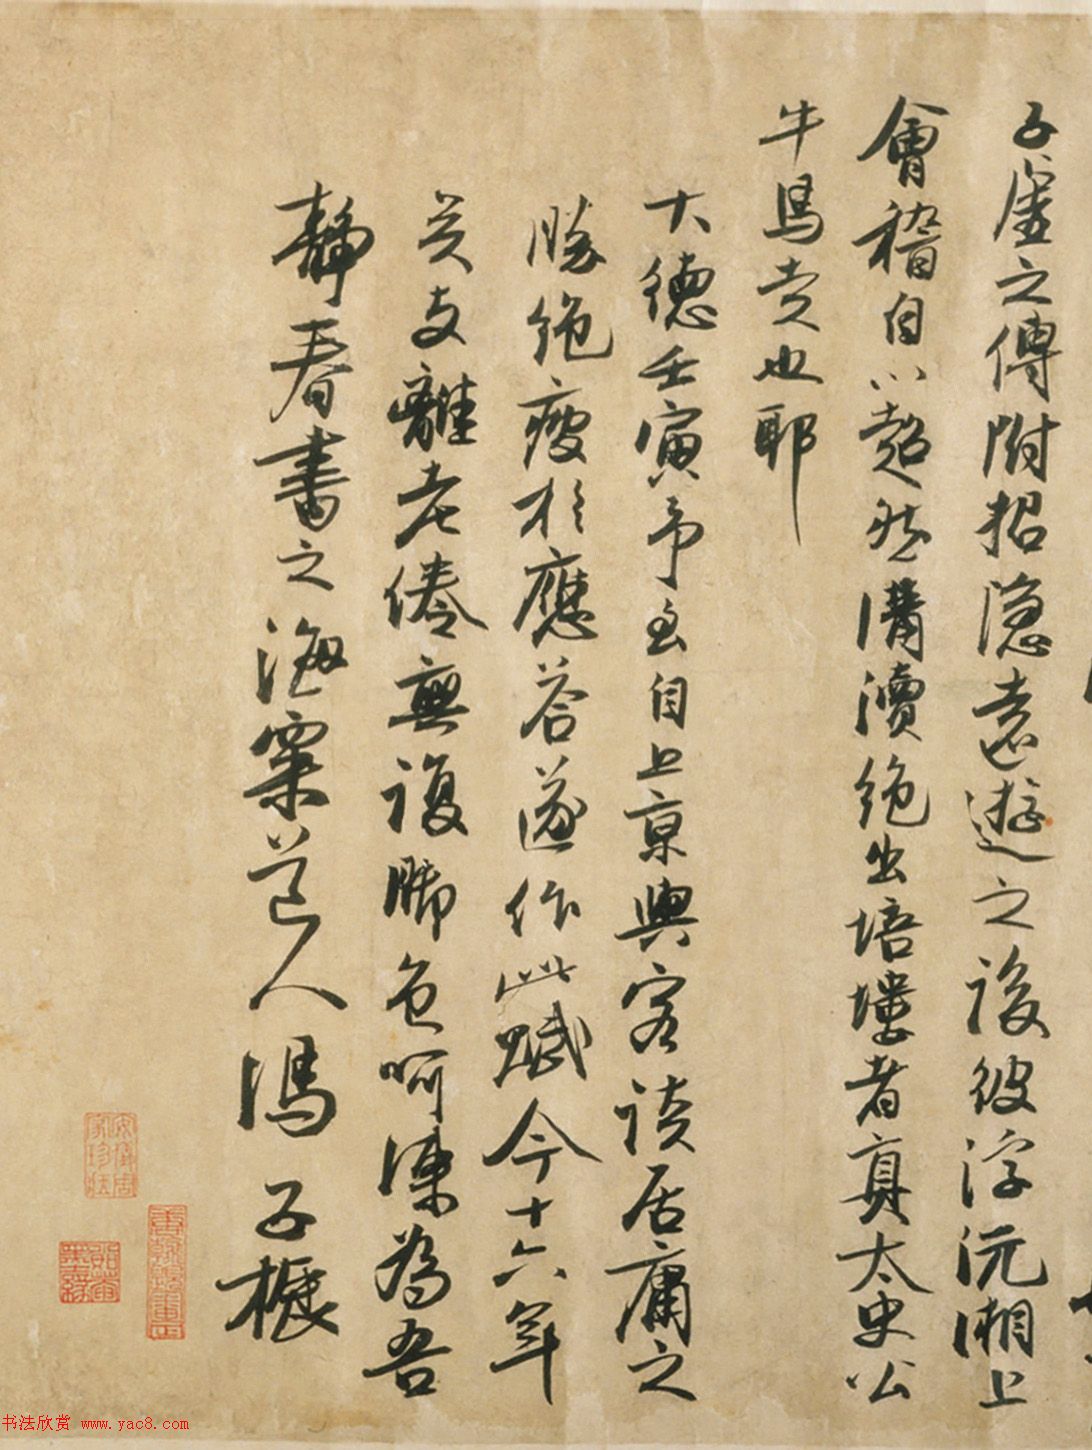 子虛之傳附招隱遠遊之後彼浮沅湘上
會稽自以超然溝瀆絕出培塿者真太史公
牛馬走也耶
大德壬寅予至自上京與客談居庸之
勝絕疲於應答遂作此賦今十六年
矣支離老倦無復脚色呵凍為吾
靜春書之海粟道人馮子振
书法欣赏 www.yac8.com